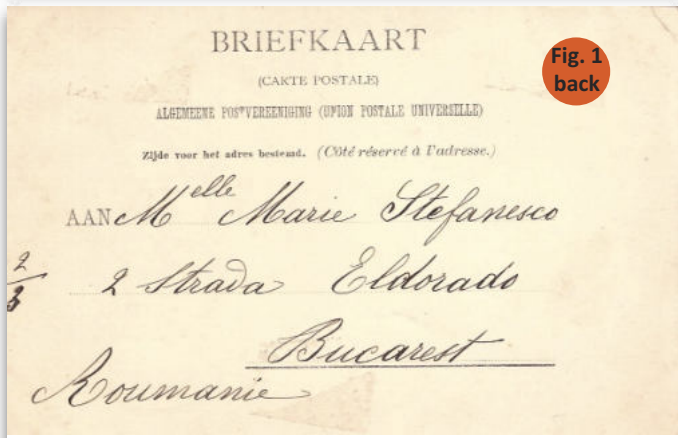 BRIEFKAART
(CARTE POSTALE)
ALGEMEENE POSTVEREENIGING (UNION POSTALE UNIVERSELLE)
Zijde voor het adres bestemd. (Côté réservé à l'adresse.)
AAN Melle Marie Stefanesco
2 Strada Eldorado
Bucarest
Roumanie
2/3
Fig. 1
back